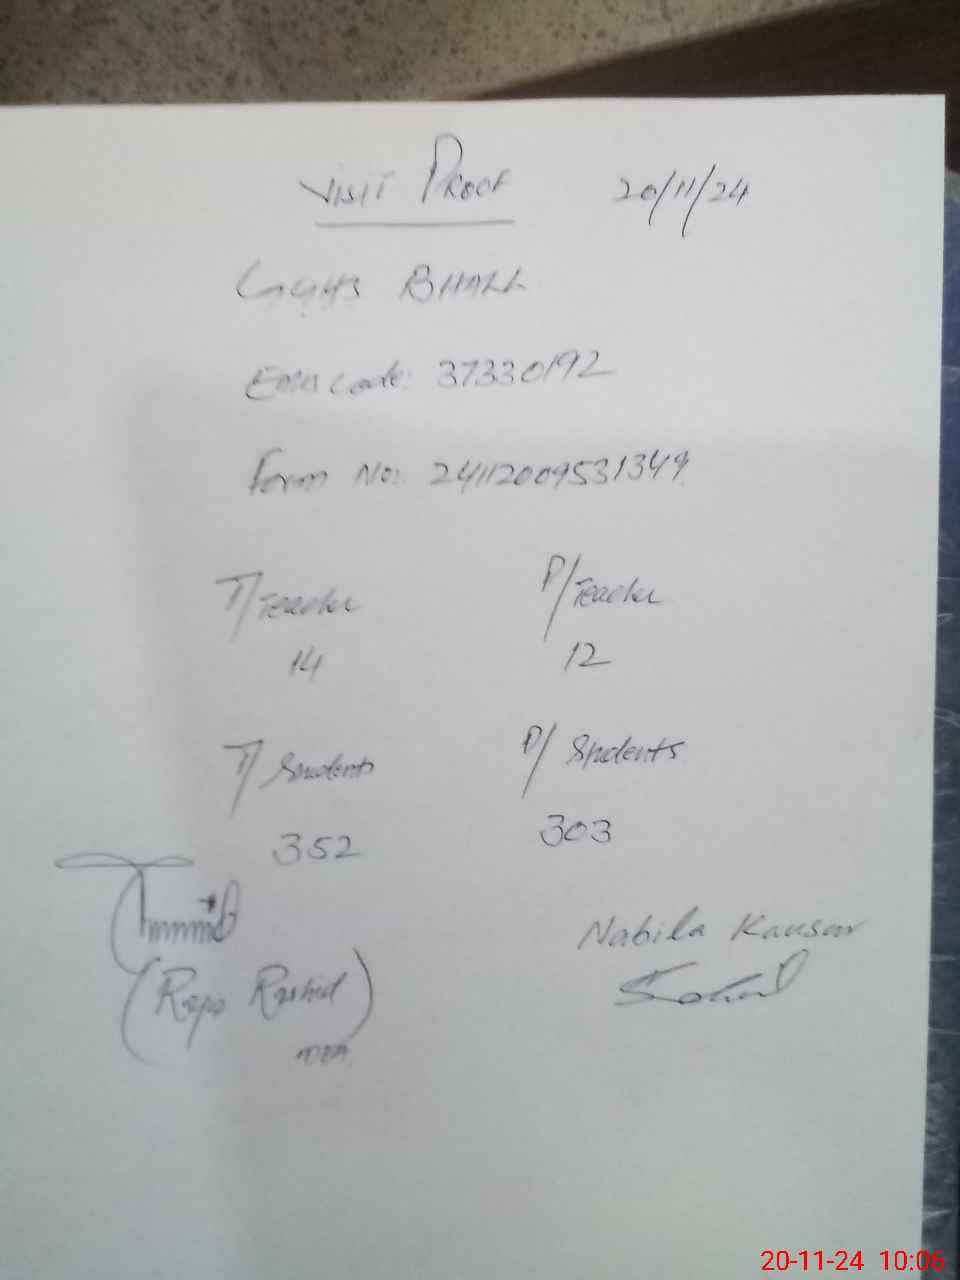 Visit Proof 20/11/24
GGHS BHALL
Emis Code: 37330192
Form No: 24112009531349
T/Teacher P/Teacher
14 12
T/Students P/Students
352 303
Nabila Kausar
(Raja Rashid)
MEA
20-11-24 10:06